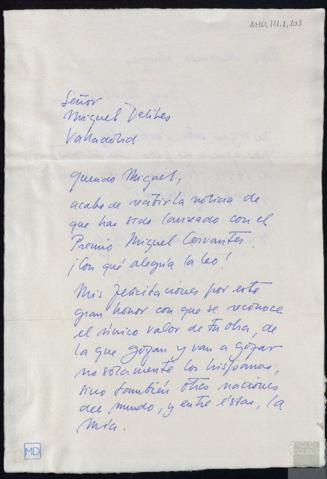 AMD, III, 1, 103
Señor
Miguel Delibes
Valladolid
Querido Miguel,
acabo de recibir la noticia de
que has sido laureado con el
Premio Miguel Cervantes.
¡Con qué alegría la leo!
Mis felicitaciones por este
gran honor con que se reconoce
el único valor de tu obra, de
la que gozan y van a gozar
no solamente los hispanos,
sino también otras naciones
del mundo, y entre éstas, la
mía.
MD